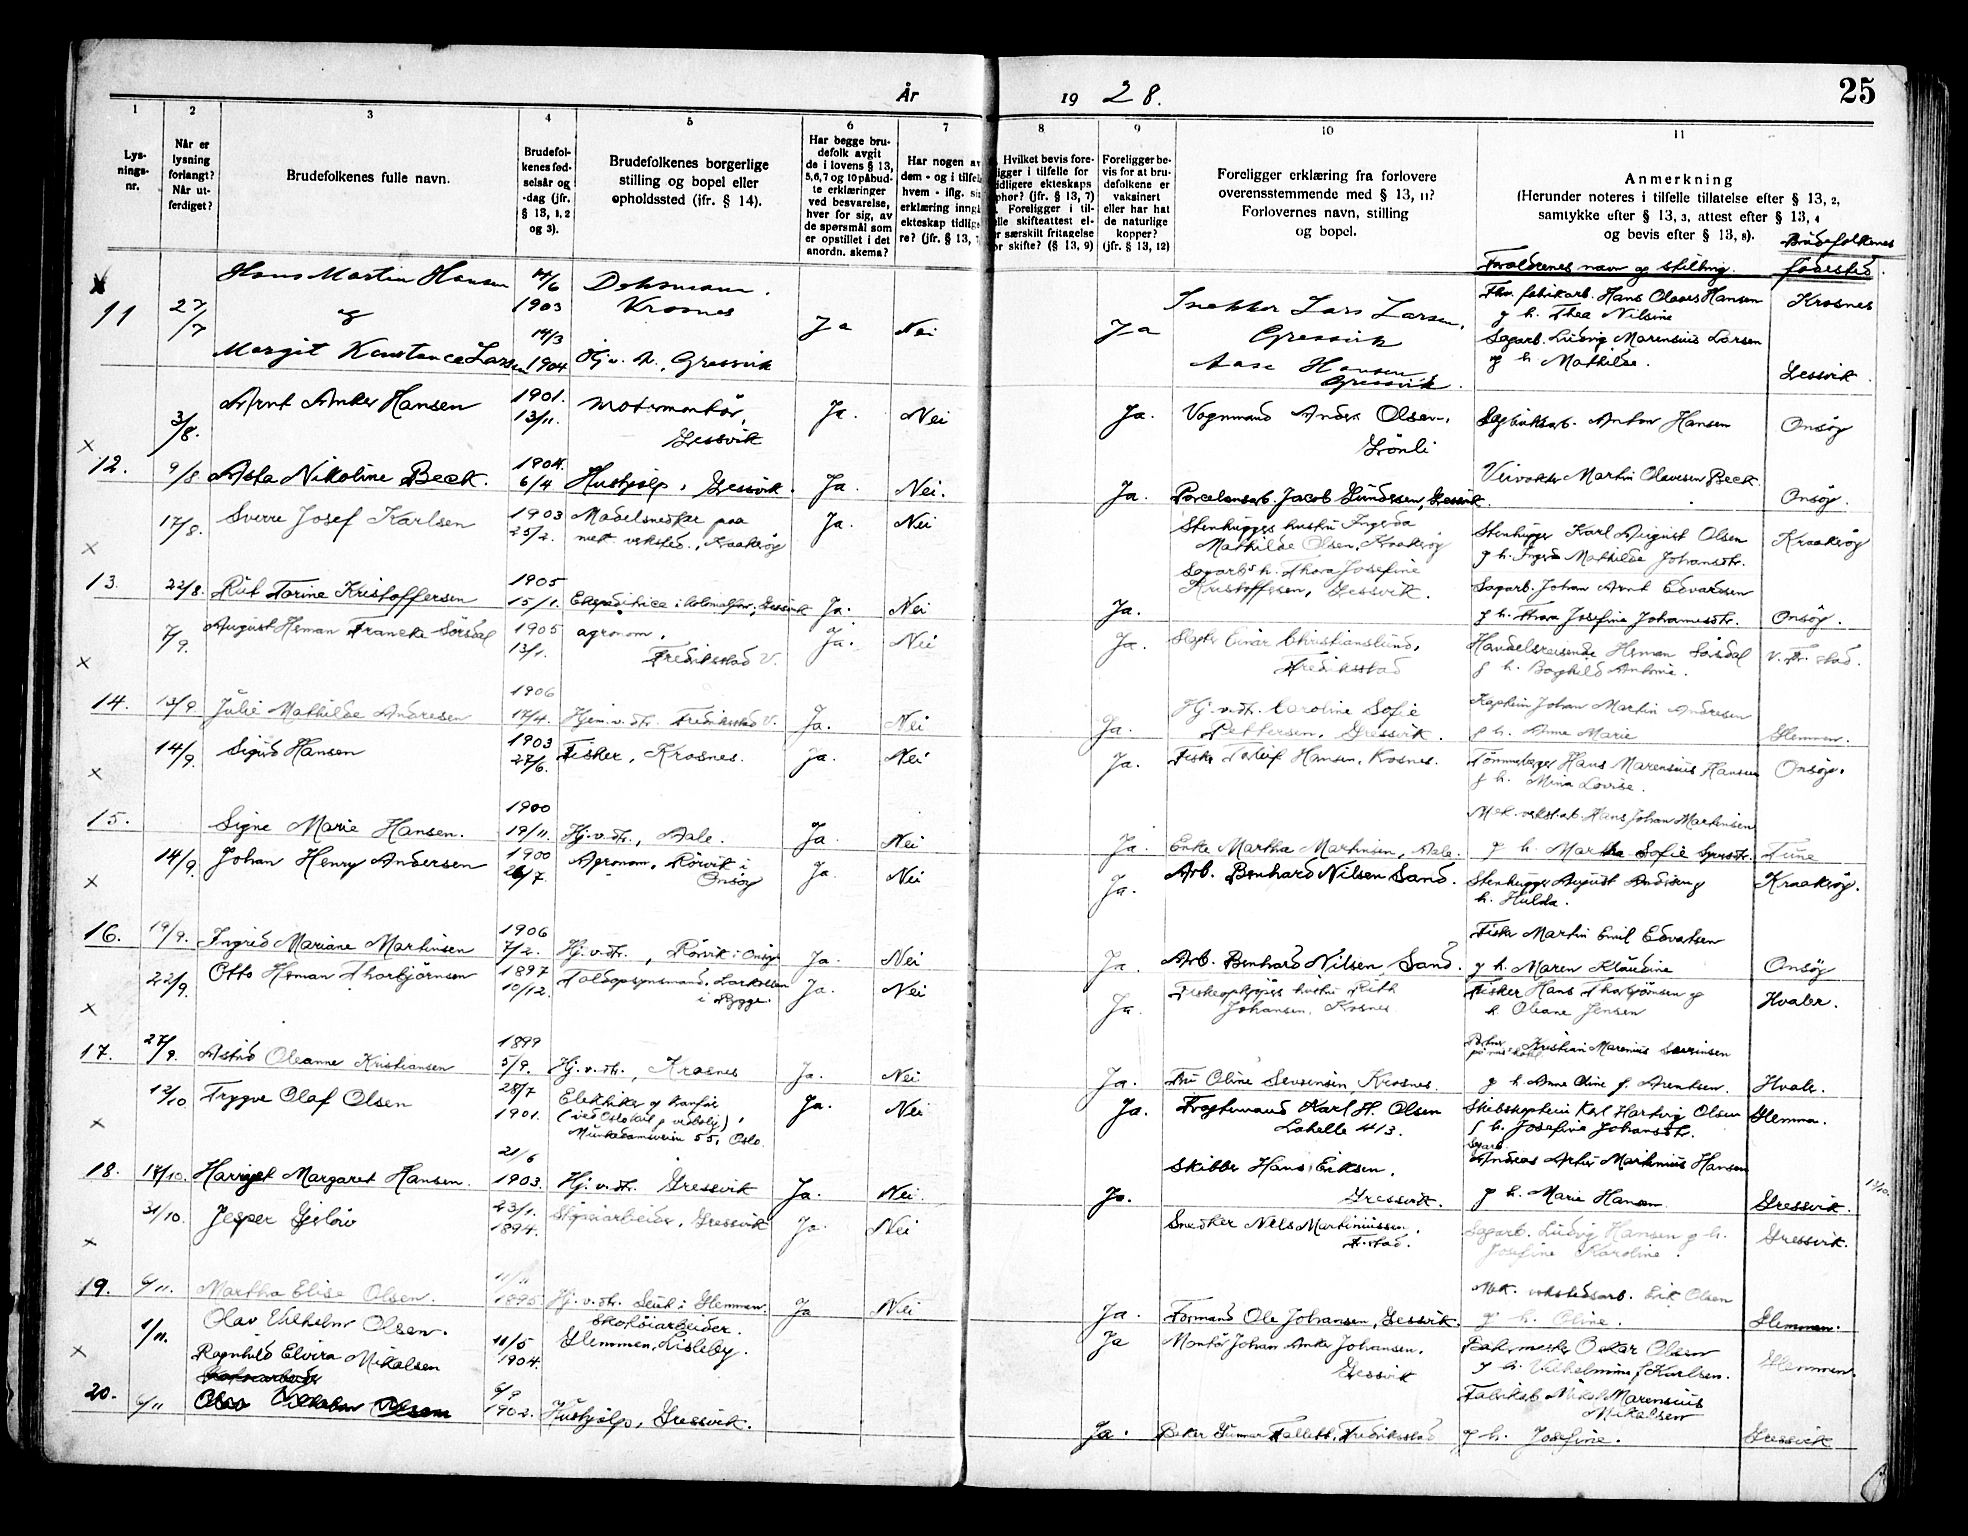 År 1928.
25
1
2
3
4
5
6
7
8
9
10
11
Lys-
nings-
nr.
Når er
lysning
forlangt?
Når ut-
ferdiget?
Brudefolkenes fulle navn.
Brudefol-
kenes fød-
selsår og
-dag (jfr.
§ 13, 1, 2
og 3).
Brudefolkenes borgerlige
stilling og bopel eller
opholdssted (ifr. § 14).
Har begge bru-
defolk avgit
de i lovens § 13,
5,6,7 og 10 påbud-
te erklæringer
ved besvarelse,
hver for sig, av
de spørsmål som
er opstillet i det
anordn. skema?
Har nogen av
dem - og i tilfelle
hvem - iflg. sin
erklæring inng
ekteskap tidlige-
re? (jfr. § 13,
Hvilket bevis fore-
ligger i tilfelle for
tidligere ekteskaps
ophør? (jfr. § 13, 7)
Foreligger i til-
felle skifteattest el-
ler særskilt fritagelse
for skifte? (§ 13, 9)
Foreligger be-
vis for at bru-
defolkene er
vaksinert
eller har hat
de naturlige
kopper?
(jfr. § 13, 12)
Foreligger erklæring fra forlovere
overensstemmende med § 13, 11?
Forlovernes navn, stilling
og bopel.
Anmerkning
(Herunder noteres i tilfelle tillatelse efter § 13, 2,
samtykke efter § 13, 3, attest efter § 13, 4
og bevis efter § 13, 8).
Forældrenes navn og stilling.
Brudefolkenes
fødested.
11
27/7
Hans Martin Hansen
og
Margit Konstance Larsen
14/6
1903
14/3
1904
Krosnes
Hj. v. d., Gressvik
Ja
Nei
Ja
Snekker Lars Larsen,
Gressvik
Aase Hansen
Gressvik.
Fhv. fabrikarb. Hans Olaves Hansen
og h. Thea Nilsine
Sagarb. Ludvig Marensius Larsen
og h. Mathilde.
Krosnes
Gressvik
x
3/8.
Arnt Anker Hansen
1901.
13/11.
Motormontør,
Gressvik
Ja.
Nei
Ja.
Vognmand Anders Olsen,
Grönli
Anton Hansen
Onsöy
12.
9/8
Asta Nikoline Beck.
1904.
6/4
Hushjelp, Gressvik.
Ja.
Nei.
Ja.
Porcelensarb. Jacob Gundersen, Gressvik.
Veivokter Martin Olavesen Beck
Onsöy.
x
17/8.
Sverre Josef Karlsen
1903
25/2.
Modelsnedker paa
mek. verksted, Kraakeröy
Ja.
Nei
Stenhuggers hustru Ingerda
Mathilde Olsen, Kraakeröy
Stenhugger Karl August Olsen
og h. Ingerda Mathilde Johansdtr.
Kraakeröy
13.
22/8.
Rut Torine Kristoffersen
1905
15/1.
Ekspeditrice i kolonialforr., Gressvik
Ja.
Nei
Ja.
Sagarb's h. Thora Josefine
Kristoffersen, Gressvik.
Sagarb. Johan Arnt Edvardsen
og h. Thora Josefine Johannesdtr.
Onsöy.
x
7/9.
August Herman Francke Sörsdal
1905
13/1.
agronom,
Fredriksstad V.
Ja.
Nei
Ja.
Einar Christianslund,
Fredriksstad
Handelsreisende Herman Sörsdal
og h. Borghild Antonie.
V. Fr.stad.
14.
13/9
Julie Mathilde Andresen
1906
17/4.
Hjem. v. dtr. Fredriksstad V.
Ja.
Nei
Ja.
Hj. v. dtr. Caroline Sofie
Pettersen, Gressvik.
Kaptein Johan Martin Andresen
og h. Anna Marie
Glemmen.
x
14/9.
Sigurd Hansen
1903
27/6.
Fisker, Krosnes.
Ja.
Nei
Ja.
Fisker Torleif Hansen, Krosnes.
Tömmerlægger Hans Marensius Hansen
og h. Mina Lovise.
Onsöy.
15.
Signe Marie Hansen.
1900
19/11.
Hj. v. dtr., Aale.
Ja.
Nei
Ja.
Enke Martha Martinsen, Aale.
Mek. verkst.arb. Hans Johan Martinsen
og h. Martha Sofie
Tune
x
14/9.
Johan Henry Andersen
1900
26/7.
Agronom, Rörvik i
Onsöy
Ja.
Nei
Ja.
Arb. Bernhard Nilsen Sand.
Stenhugger August Andersen og
h. Hulda.
Kraakeröy.
16.
19/9.
Ingrid Mariane Martinsen
1906
7/2.
Hj. v. dtr., Rörvik i Onsöy
Ja.
Nei
Ja.
Arb. Bernhard Nilsen Sand.
Fisker Martin Emil Edvartsen
og h. Maren Klaudine
Onsöy
x
22/9.
Otto Herman Thorbjörnsen
1897
10/12.
Toldopsynsmand, Larkollen
i Rygge.
Ja.
Nei
Ja.
Fiskeopkjöpers hustru Ruth
Johansen, Krosnes
Fisker Hans Thorbjörnsen og
h. Oleane Jensen
Hvaler.
17.
27/9.
Astrid Oleanne Kristiansen
1899
5/9.
Hj. v. dtr., Krosnes
Ja.
Nei
Ja.
Fru Oline Severinsen Krosnes.
Kristian Marenius Severinsen
og h. Anne Oline f. Arentsen.
Hvaler.
x
12/10
Trygve Olaf Olsen
28/7
1901.
Elektriker og
Munkedamsveien 55, Oslo.
Ja.
Nei
Ja.
Fragtemand Karl H. Olsen
Lahelle 413.
Skibskaptein Karl Hartvig Olsen
og h. Josefine Johansdtr.
Glemmen.
18.
17/10.
Harriet Margaret Hansen.
21/6
1903.
Hj. v. dtr. Gressvik
Ja.
Nei.
Ja.
Skibber Hans Eriksen.
Gressvik.
Sagarb.
Andreas Artur Martinius Hansen
og h. Marie Hansen
Gressvik.
x
31/10.
Jesper Gjerlöv
23/1.
1894.
Gressvik
Ja.
Nei
Snedker Nils Martiniussen.
F.stad.
Sagarb. Ludvig Hansen og h.
Josefine Karoline.
Gressvik.
19.
6/11.
Martha Elise Olsen.
11/11
1895
Hj. v. dtr. Seut i Glemmen.
Ja
Nei
Ja.
Formand Ole Johansen, Gressvik.
Mek. verkstedsarb. Erik Olsen
og h. Oline.
Glemmen.
x
1/11.
Olav Vilhelm Olsen.
11/5
1904.
Skotöiarbeider.
Glemmen, Lisleby.
Ja
Montör Johan Anker Johansen.
Gressvik
Oskar Olsen
og h. Vilhelmine f. Karlsen.
Glemmen.
20.
6/11
Ragnhild Elvira Mikalsen
Olav Vilhelm Olsen
6/9
1902.
Hushjelp, Gressvik.
Ja.
Baker Gunnar Falleth, Fredriksstad
Fabrikarb. Mikal Marensius
Mikalsen
og h. Josefine.
Gressvik